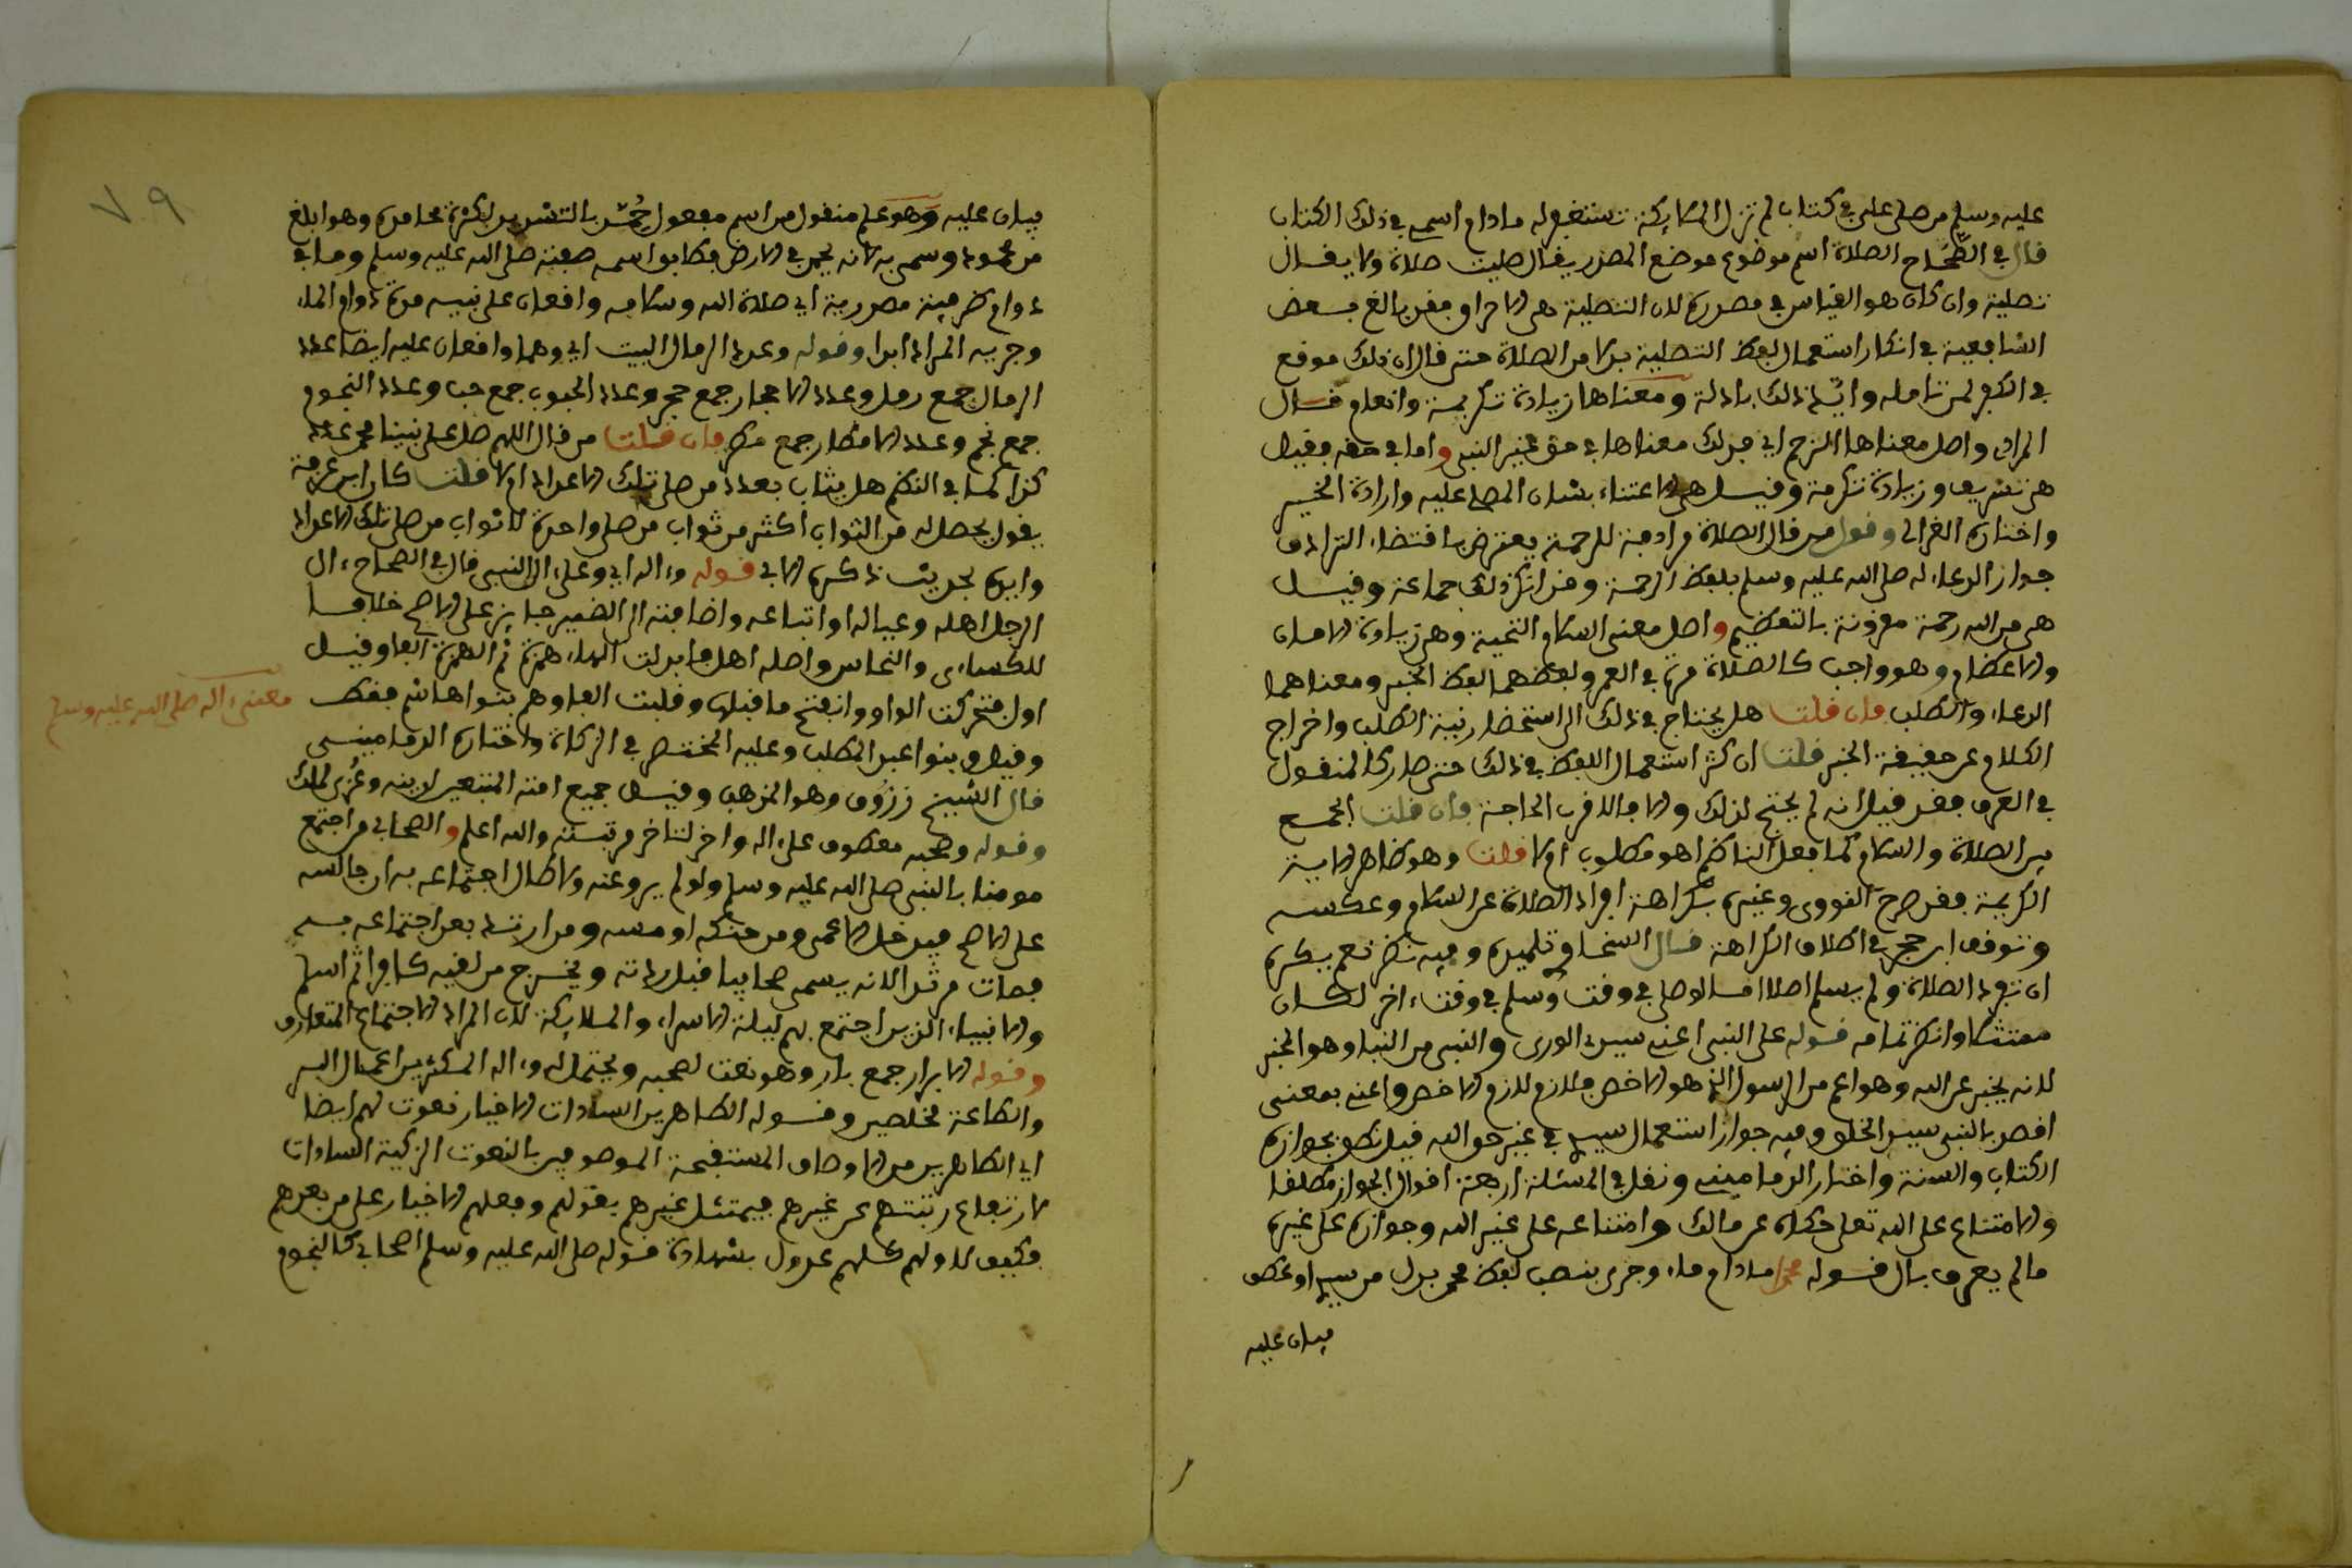 عليه وسلم من صلى علي في كتاب لم تزل الملايكة تستغفر له ما دام اسمي في ذلك الكتاب
قال في الصِّحَاح الصلاة اسم موضوع موضع المصدر يقال صليت صلاة ولا يقال
تصلية وان كان هو القياس في مصدره لان التصلية هي الاحراق وقد بالغ بعض
الشافعية في انكار استعمال لفظ التصلية بدلا من الصلاة حتى قال ان ذلك موقع
في الكفر لمن تامله وايّد ذلك بادلة ومعناها زيادة تكرمة وانعام قال
المراد واصل معناها الترحم اي فذلك معناها في حق غير النبي واما في حقه فقيل
هي تشريف وزيادة تكرمة وقيل هي الاعتناء بشان المصلى عليه وارادة الخير
واختاره الغزالي وقول من قال الصلاة مرادفة للرحمة يعترض باقتضاء الترادف
جواز الدعاء له صلى الله عليه وسلم بلفظ الرحمة وقد انكر ذلك جماعة وقيل
هي من الله رحمة مقرونة بالتعظيم واصل معنى السلام التحية وهي زيادة الامان
والاعظام وهو واجب كالصلاة مرة في العمر ولفظهما لفظ الخبر ومعناهما
الدعاء والطلب فان قلت هل يحتاج في ذلك الى استحضار نية الطلب واخراج
الكلام عن حقيقة الخبر قلت ان كثر استعمال اللفظ في ذلك حتى صار كالمنقول
في العرف فقد قيل انه لم يحتج لذلك والا فالاقرب الحاجة فان قلت الجمع
بين الصلاة والسلام كما فعل الناظم اهو مطلوب ام لا قلت وهو ظاهر الاية
الكريمة فقد صرح النووي وغيره بكراهة افراد الصلاة عن السلام وعكسه
وتوقف ابن حجر في اطلاق الكراهة قال السخاوي تلميذه وفيه نظر نعم يكره
ان يفرد الصلاة ولم يسلم اصلا اما لو صلى في وقت وسلم في وقت ءاخر لكان
ممتثلا وانظر تمامه قوله على النبي اعني سيد الورى والنبي من النبا وهو الخبر
لانه يخبر عن الله وهو اعم من الرسول الذي هو الاخص ملازم للازم الاخص واعني بمعنى
اقصد بالنبي سيد الخلق وفيه جواز استعمال السيد في غير حق الله قيل نطق بجوازه
الكتاب والسنة واختار الدماميني ونقل في المسئلة اربعة اقوال الجواز مطلقا
والامتناع على الله تعلى حكاه عن مالك وامتناعه على غير الله وجوازه على غيره
ما لم يعرف بال قوله محمد ما دام ماء وجرى بنصب لفظ محمد بدل من سيد او عطف
بيان عليه
٧٩
بيان عليه وهو علم منقول من اسم مفعول حُمّد بالتشديد لكثرة محامده وهو ابلغ
من محمود وسمي به لانه يحمد في الارض فطابق اسمه صفته صلى الله عليه وسلم وما في
دوام ظرفية مصدرية اي صلاة الله وسلامه واقعان على نبيه مدة دوام الماء
وجريه المراد ابدا وقوله وعدد الرمال البيت اي وهما واقعان عليه ايضا عدد
الرمال جمع رمل وعدد الاحجار جمع حجر وعدد الحبوب جمع حب وعدد النجوم
جمع نجم وعدد الامطار جمع مطر فان قلت من قال اللهم صل على نبينا محمد عدد
كذا كما في النظم هل يثاب بعدد من صلى تلك الاعداد ام لا قلت كان ابن عرفة
يقول يحصل له من الثواب اكثر من ثواب من صلى واحدة لا ثواب من صلى تلك الاعداد
وايده بحديث ذكره الابي قوله وءاله اي وعلى ءال النبي قال في الصحاح ءال
الرجل اهله وعياله او اتباعه واضافته الى الضمير جايز على الاصح خلافا
للكساءى والنحاس واصله اهل فابدلت الهاء همزة ثم الهمزة الفا وقيل
اول تحركت الواو وانفتح ما قبلها وقلبت الفا وهم بنوا هاشم فقط
معنى ءاله صلى الله عليه وسلم
وقيل وبنوا عبد المطلب وعليه المختصر في الزكاة واختاره الدماميني
قال الشيخ زروق وهو المذهب وقيل جميع امته المتبعين لدينه وعُزي لمالك
وقوله وصحبه معطوف على ءاله واخر لتاخر مرتبته والله اعلم والصحابي من اجتمع
مومنا بالنبي صلى الله عليه وسلم ولو لم يرو عنه ولا طال اجتماعه به ان جالسه
على الاصح فيدخل الاعمى ومن حنكه او مسه ومن ارتد بعد اجتماعه به
فمات مرتدا لانه يسمى صحابيا قبل ردته ويخرج من لقيه كافرا ثم اسلم
والانبياء الذين اجتمع بهم ليلة الاسراء والملايكة لان المراد الاجتماع المتعارف
وقوله الابرار جمع بار وهو نعت لصحبه ويحتمل له وءاله المكثرين اعمال البر
والطاعة مخلصين وقوله الطاهرين السادات الاخيار نعوت لهم ايضا
اي الطاهرين من الاوصاف المستقبحة الموصوفين بالنعوت الزكية السادات
لارتفاع رتبتهم عن غيرهم فيمتثل غيرهم بقولهم وفعلهم الاخيار على من بعدهم
فكيف لا وهم كلهم عدول بشهادة قوله صلى الله عليه وسلم اصحابي كالنجوم